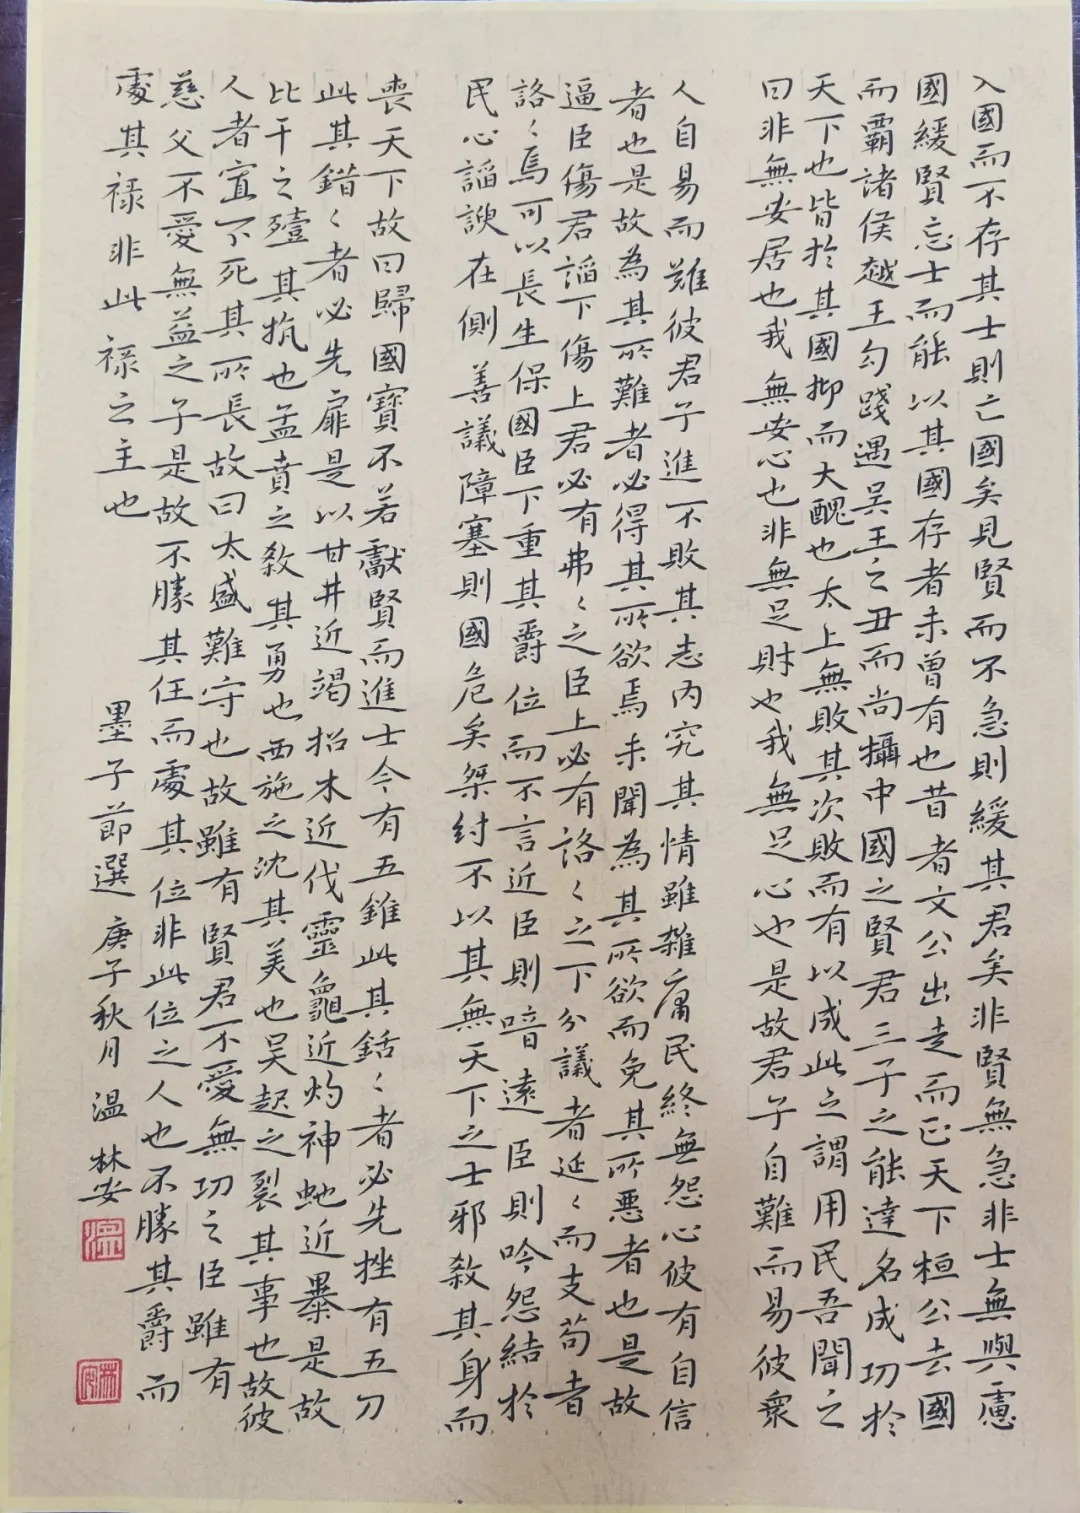 入國而不存其士則亡國矣見賢而不急則緩其君矣非賢無急非士無與慮
國緩賢忘士而能以其國存者未曾有也昔者文公出走而正天下桓公去國
而霸諸侯越王勾踐遇吴王之丑而尚攝中國之賢君三子之能達名成功於
天下也皆於其國抑而大醜也太上無敗其次敗而有以成此之謂用民吾聞之
曰非無安居也我無安心也非無足財也我無足心也是故君子自難而易彼衆
人自易而難彼君子進不敗其志内究其情雖雜庸民終無怨心彼有自信
者也是故為其所難者必得其所欲焉未聞為其所欲而免其所悪者也是故
逼臣傷君謟下傷上君必有弗々之臣上必有詻々之下分議者延々而支苟者
詻々焉可以長生保國臣下重其爵位而不言近臣則喑遠臣則吟怨結於
民心謟諛在側善議障塞則國危矣桀紂不以其無天下之士邪殺其身而
喪天下故曰歸國寶不若獻賢而進士今有五錐此其銛々者必先挫有五刀
此其錯々者必先靡是以甘井近竭招木近伐靈龜近灼神虵近暴是故
比干之殪其抗也孟賁之殺其勇也西施之沈其美也吴起之裂其事也故彼
人者寔不死其所長故曰太盛難守也故雖有賢君不愛無功之臣雖有
慈父不愛無益之子是故不勝其任而處其位非此位之人也不勝其爵而
處其禄非此禄之主也
墨子節選 庚子秋月 温林安
温
林安